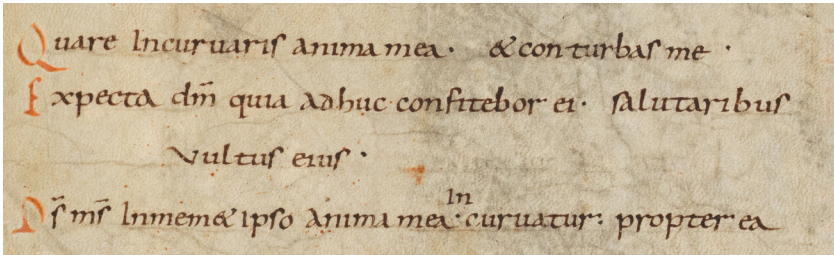 Quare Incuruaris anima mea· & conturbas me ·
Expecta dm̄ quia adhuc confitebor ei· salutaribus
vultus eius ·
Ds̄ ms̄ Inmem& ipso anima mea· Incuruatur: propterea